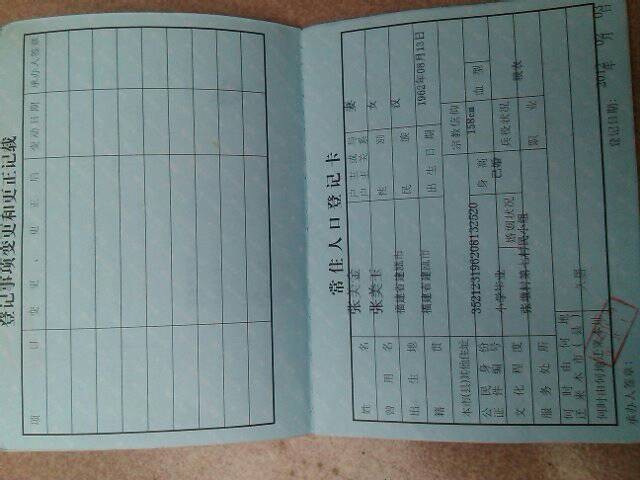 登记事项变更和更正记载
项 目
变更、更正后
变动日期
承办人签章
常住人口登记卡
姓名
户主或与户主关系 妻
曾用名 张美玉
性别 女
出生地 福建省建瓯市
民族 汉
籍贯 福建省建瓯市
出生日期 1962年08月13日
本市(县)其他住址
宗教信仰
公民身份证件编号 352123196208132520
身高 158cm
血型
文化程度 小学毕业
婚姻状况 已婚
兵役状况
服务处所
职业
何时由何地迁来本市(县)
何时由何地迁来本址
承办人签章:
登记日期: